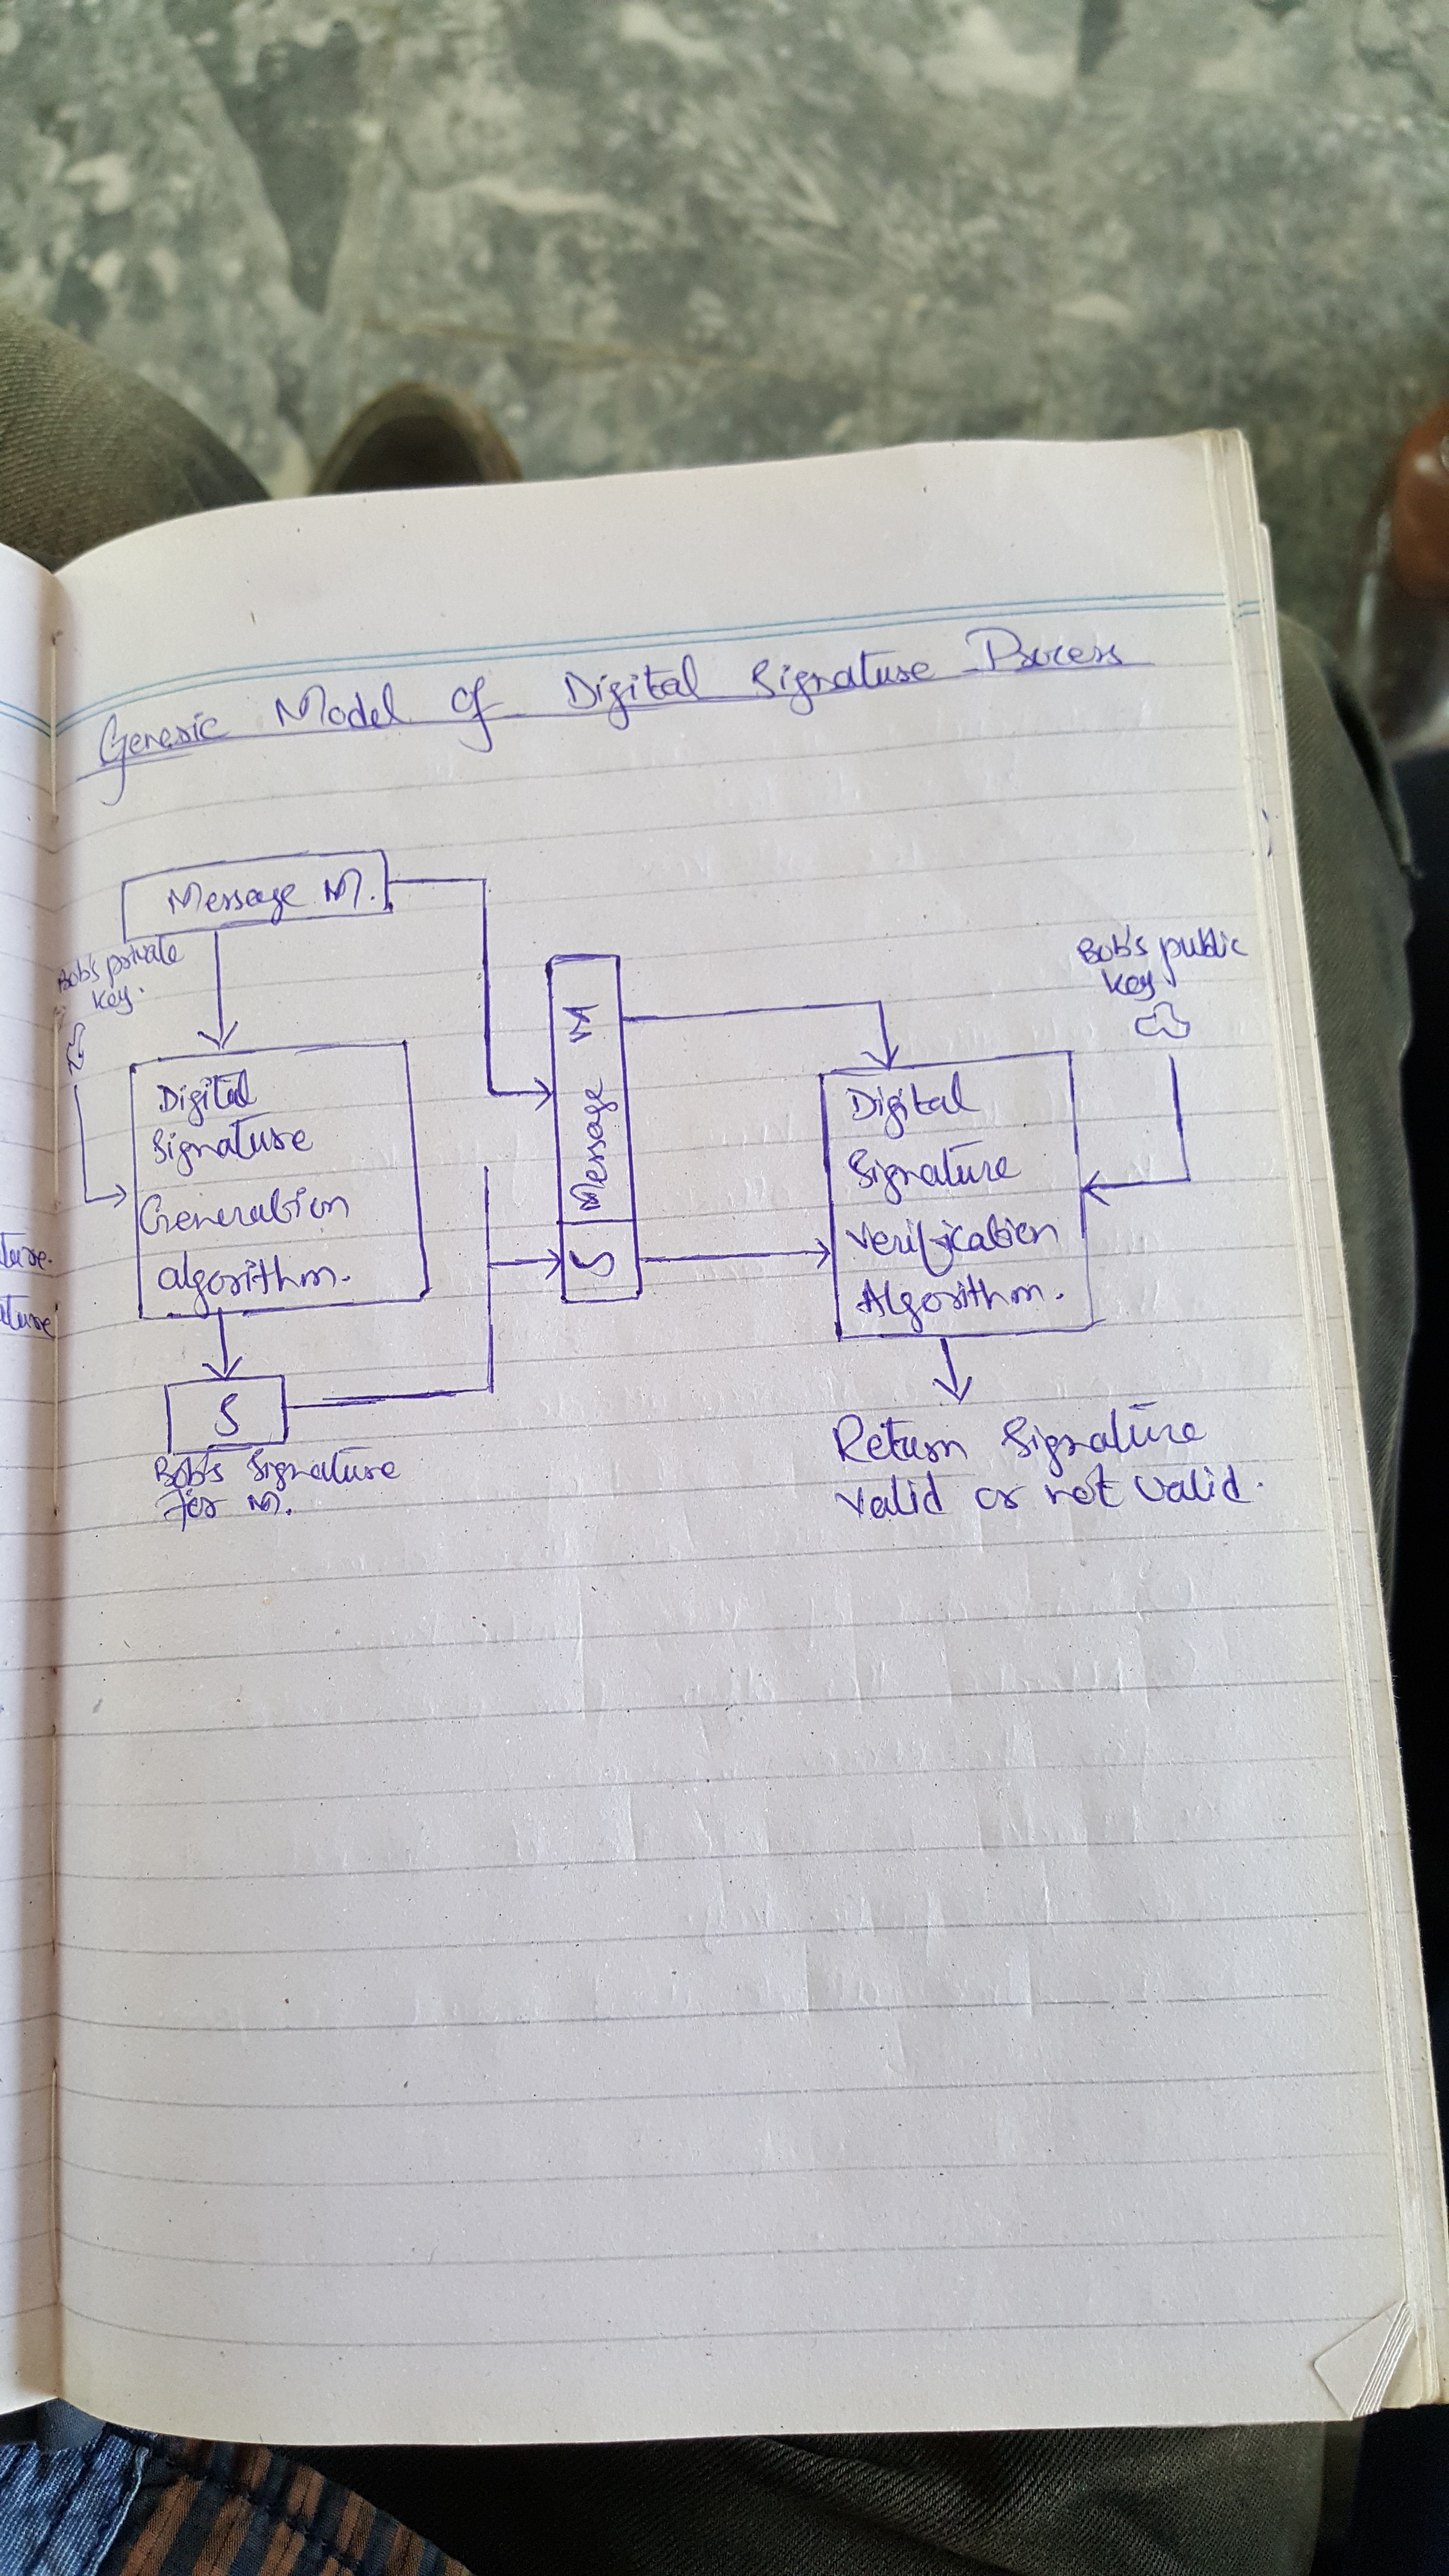 Generic Model of Digital Signature Process
Message M.
Bob's private
key.
Digital
Signature
Generation
algorithm.
S
Bob's Signature
for M.
Message M
S
Bob's public
key
Digital
Signature
Verification
Algorithm.
Return Signature
valid or not valid.
ture.
ature